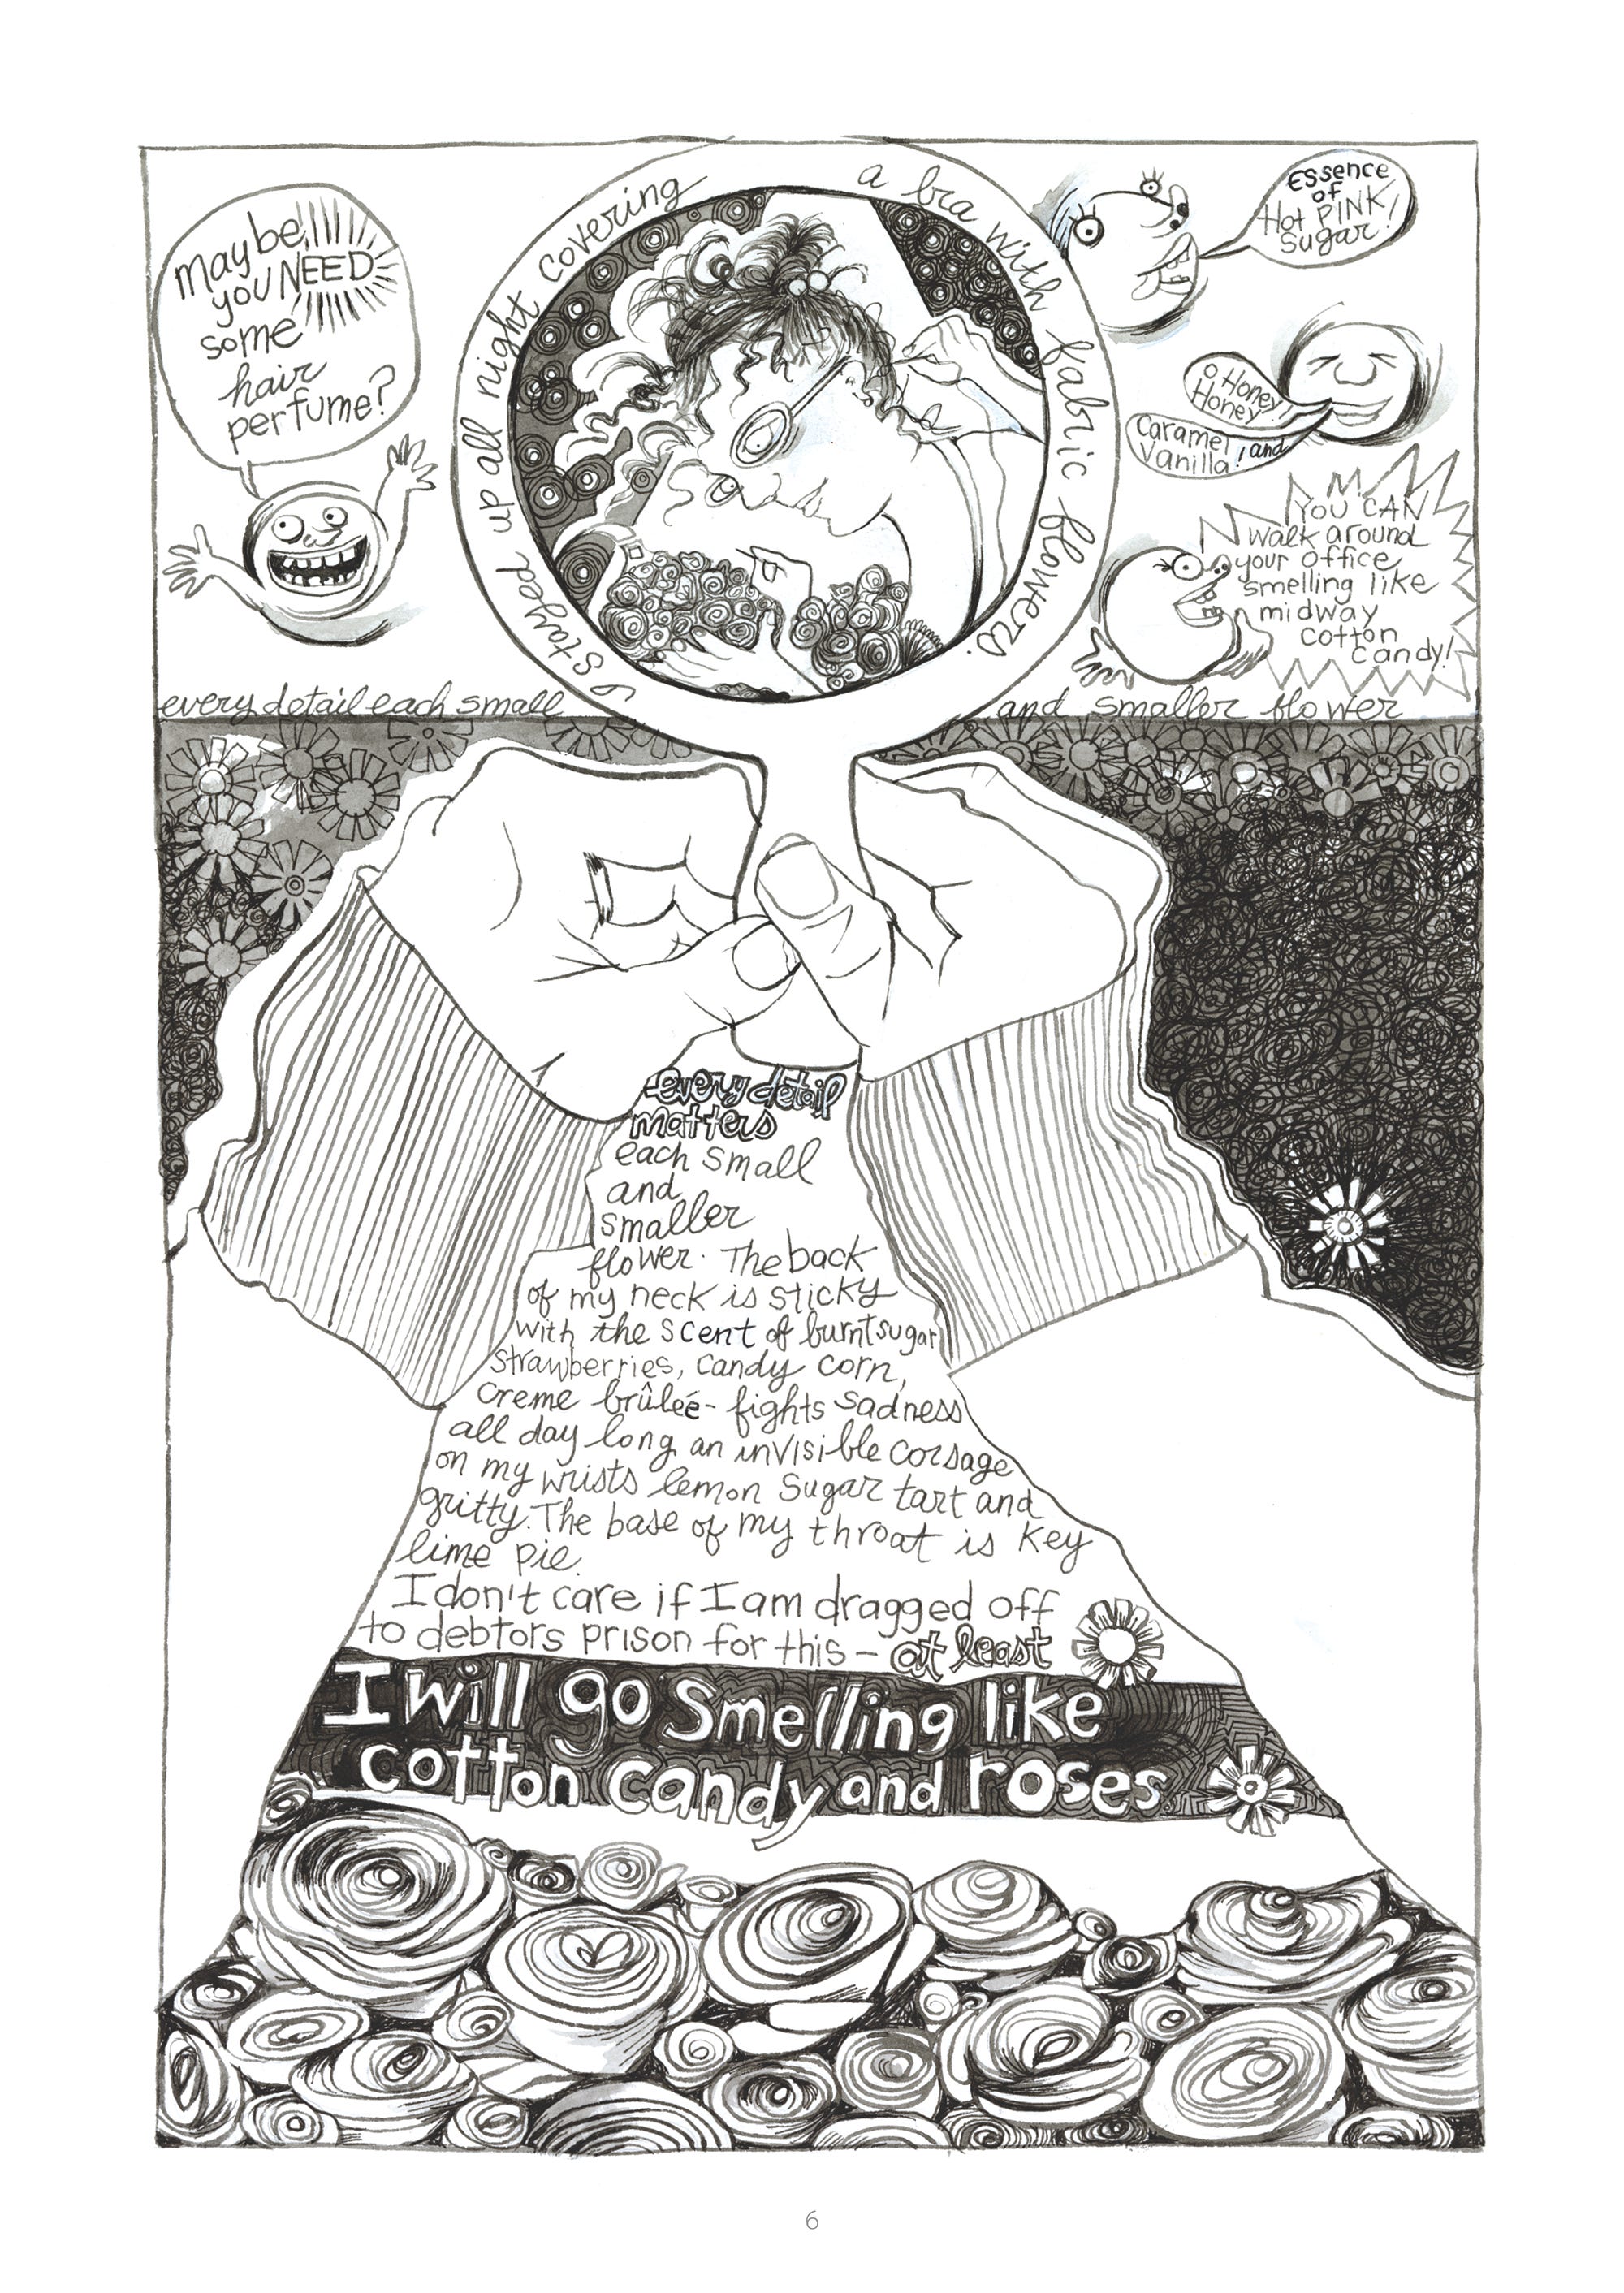 Maybe
you NEED
some
hair
perfume?
stayed up all night covering a bra with fabric flowers.
Essence
of
Hot PINK
Sugar!
O Honey!
Honey
Caramel
Vanilla! and
You CAN
walk around
your office
smelling like
midway
cotton
candy!
every detail each small
and smaller flower
every detail
matters
each small
and
smaller
flower. The back
of my neck is sticky
with the scent of burnt sugar
strawberries, candy corn,
creme brûleé - fights sadness
all day long an invisible corsage
on my wrists lemon sugar tart and
gritty. The base of my throat is key
lime pie.
I don't care if I am dragged off
to debtors prison for this - at least
I will go smelling like
cotton candy and roses
6